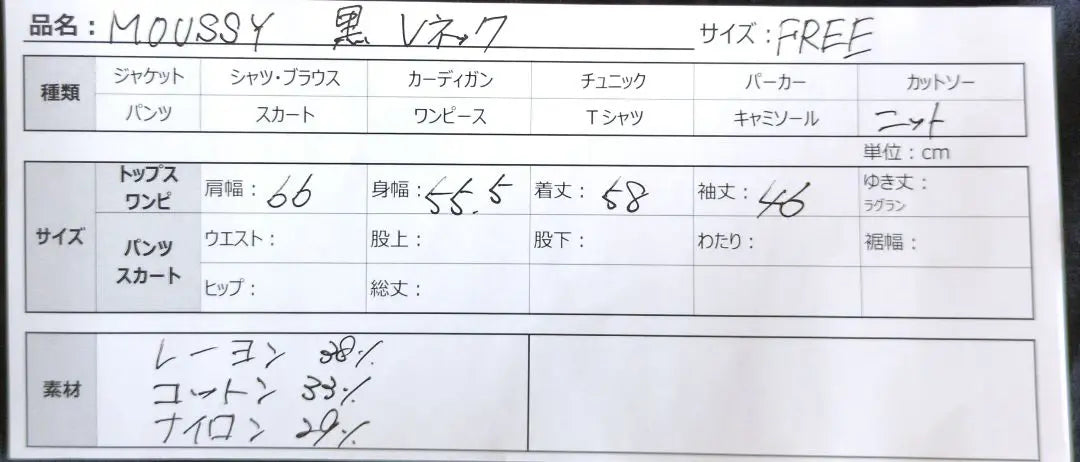 品名：MOUSSY 黒 Vネック サイズ：FREE
種類 ジャケット シャツ・ブラウス カーディガン チュニック パーカー カットソー
パンツ スカート ワンピース Tシャツ キャミソール ニット
単位：cm
サイズ トップス ワンピ 肩幅：66 身幅：55.5 着丈：58 袖丈：46 ゆき丈： ラグラン
パンツ スカート ウエスト： 股上： 股下： わたり： 裾幅：
ヒップ： 総丈：
素材 レーヨン 38%
コットン 33%
ナイロン 29%